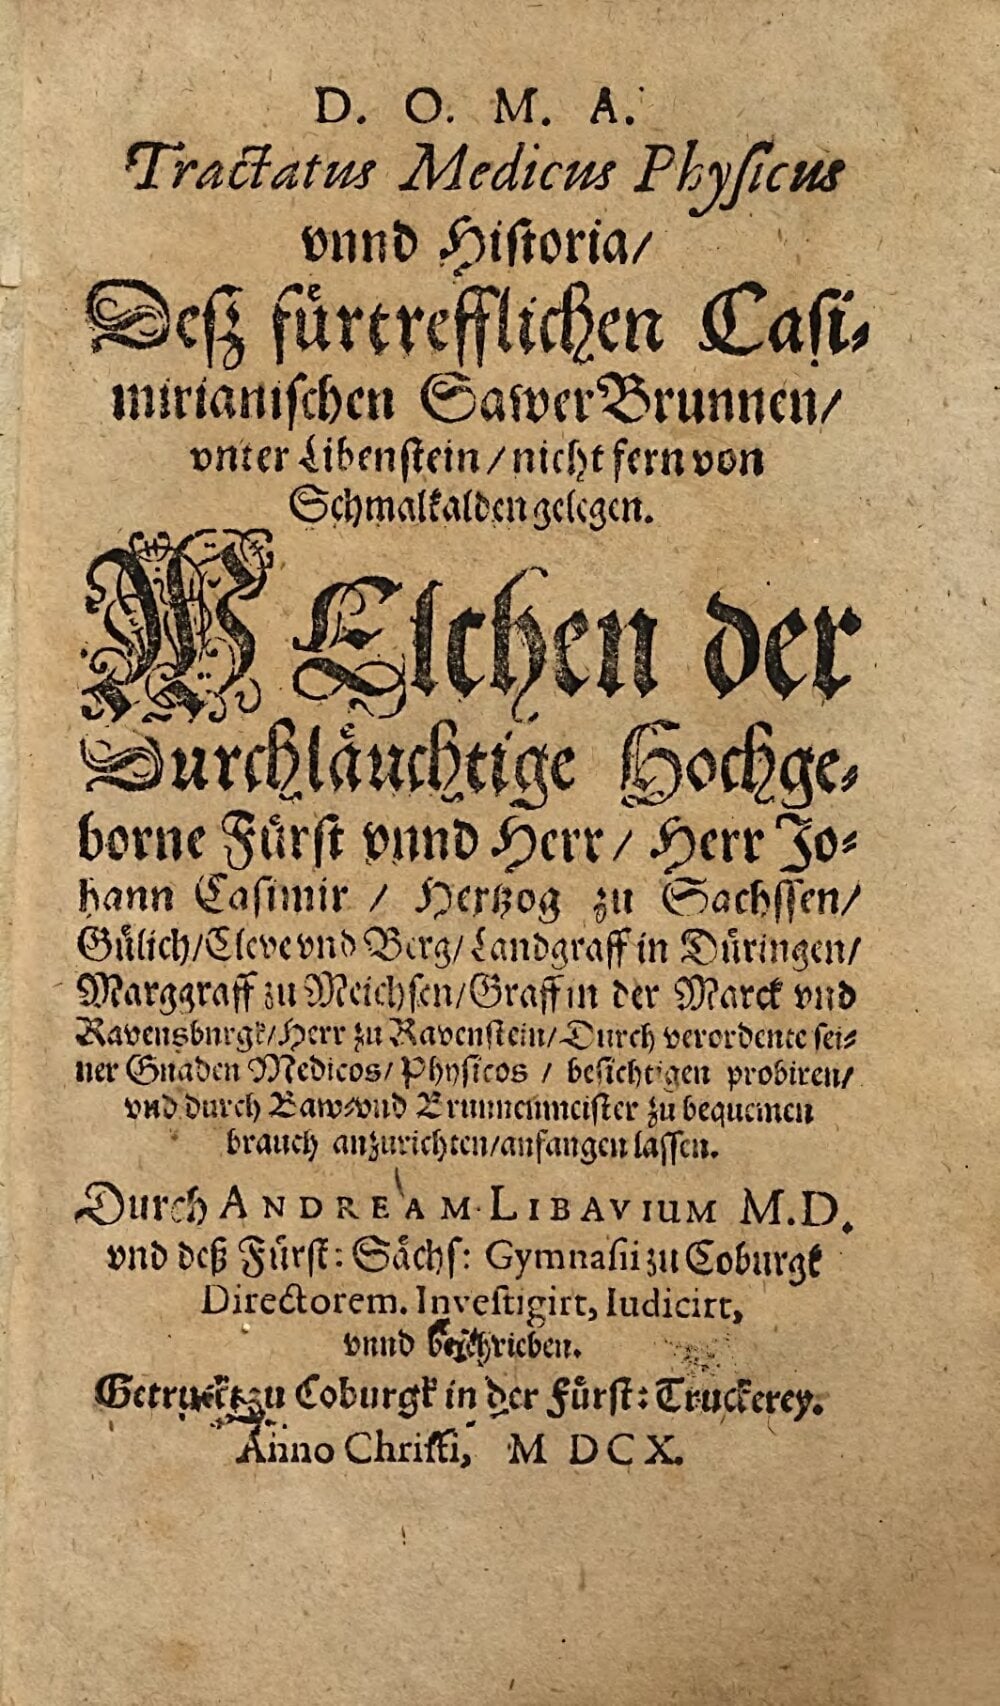 D. O. M. A.
Tractatus Medicus Physicus
vnnd Historia/
Deß fürtrefflichen Casi-
mirianischen SawerBrunnen/
vnter Libenstein/nicht fern von
Schmalkalden gelegen.
WElchen der
Durchläuchtige Hochge-
borne Fürst vnnd Herr/ Herr Jo-
hann Casimir / Hertzog zu Sachssen/
Gülich/Cleve vnd Berg/Landgraff in Düringen/
Marggraff zu Meichsen/Graff in der Marck vnd
Ravensburgk/Herr zu Ravenstein/Durch verordente sei-
ner Gnaden Medicos/Physicos / besichtigen probiren/
vnd durch Baw-vnd Brunnenmeister zu bequemen
brauch anzurichten/anfangen lassen.
Durch ANDREAM LIBAVIUM M.D.
vnd deß Fürst: Sächs: Gymnasii zu Coburgk
Directorem. Investigirt, Iudicirt,
vnnd beschrieben.
Getruckt zu Coburgk in der Fürst: Truckerey.
Anno Christi, M DC X.